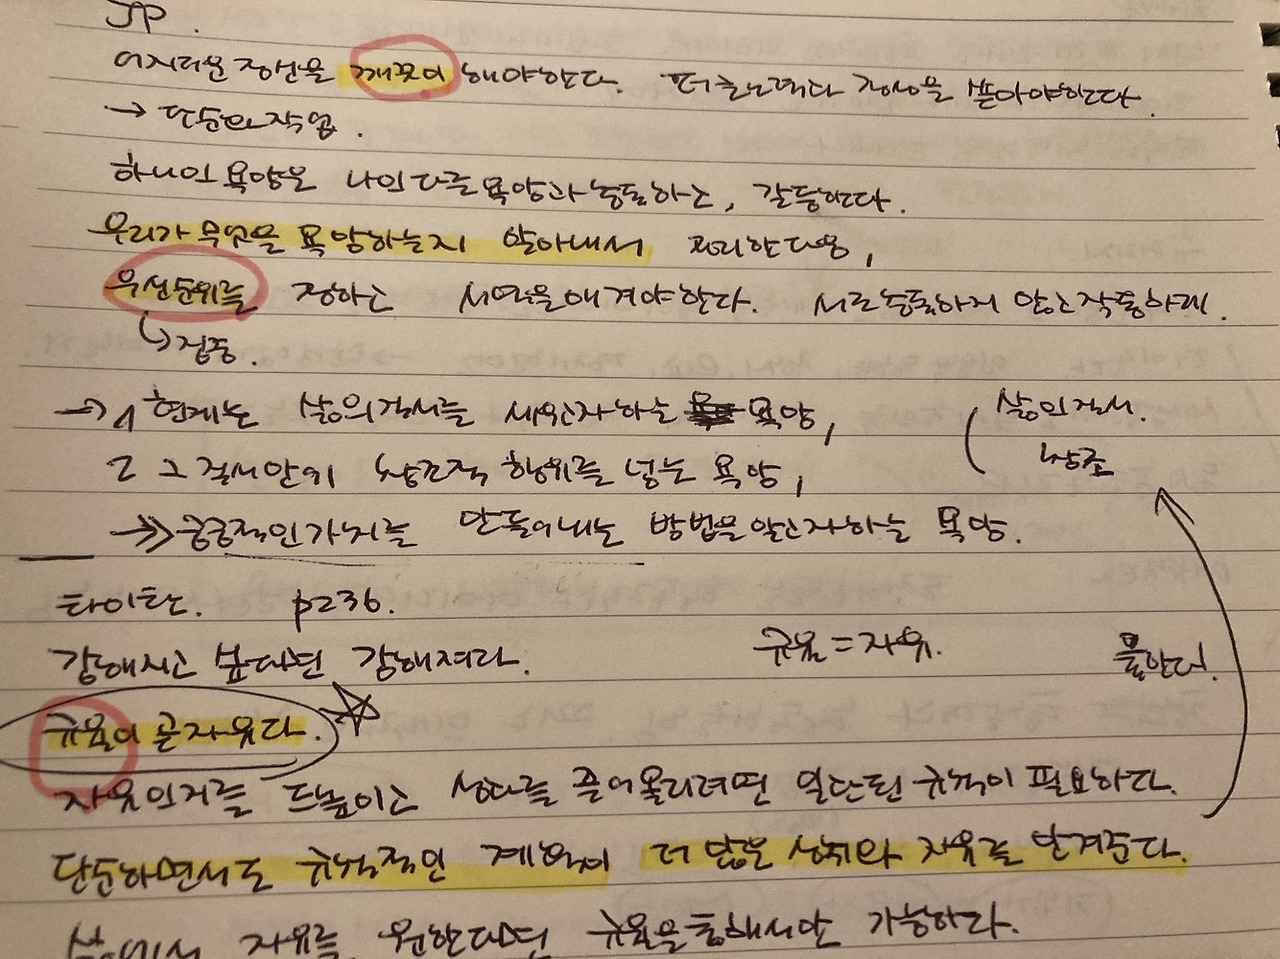 JP.
어지러운 정신을 깨끗이 해야한다. 정신을 쏟아야한다
→ 단순한 작업.
하나의 욕망은 나의 다른 욕망과 충돌하고, 갈등한다.
우리가 무엇을 욕망하는지 알아내서 정리한다음,
우선순위를 정하고 새겨야한다. 서로 충돌하지 않고 작동하게.
↳ 집중.
→ 1 현재는 삶의 질서를 세우고자하는 욕망,
삶의 질서.
2 그 질서안에 창조적 행위를 넣는 욕망,
창조
→> 궁극적인 가치를 만들어내는 방법을 알고자하는 욕망.
타이탄. p236.
강해지고 싶다면 강해져라. 규율=자유.
규율이 곧 자유다.
자유의지를 드높이고 끌어올리려면 일단된 규칙이 필요하다.
단순하면서도 규칙적인 계획이 더 많은 성취와 자유를 안겨준다.
삶에서 자유를 원한다면 규율을 통해서만 가능하다.